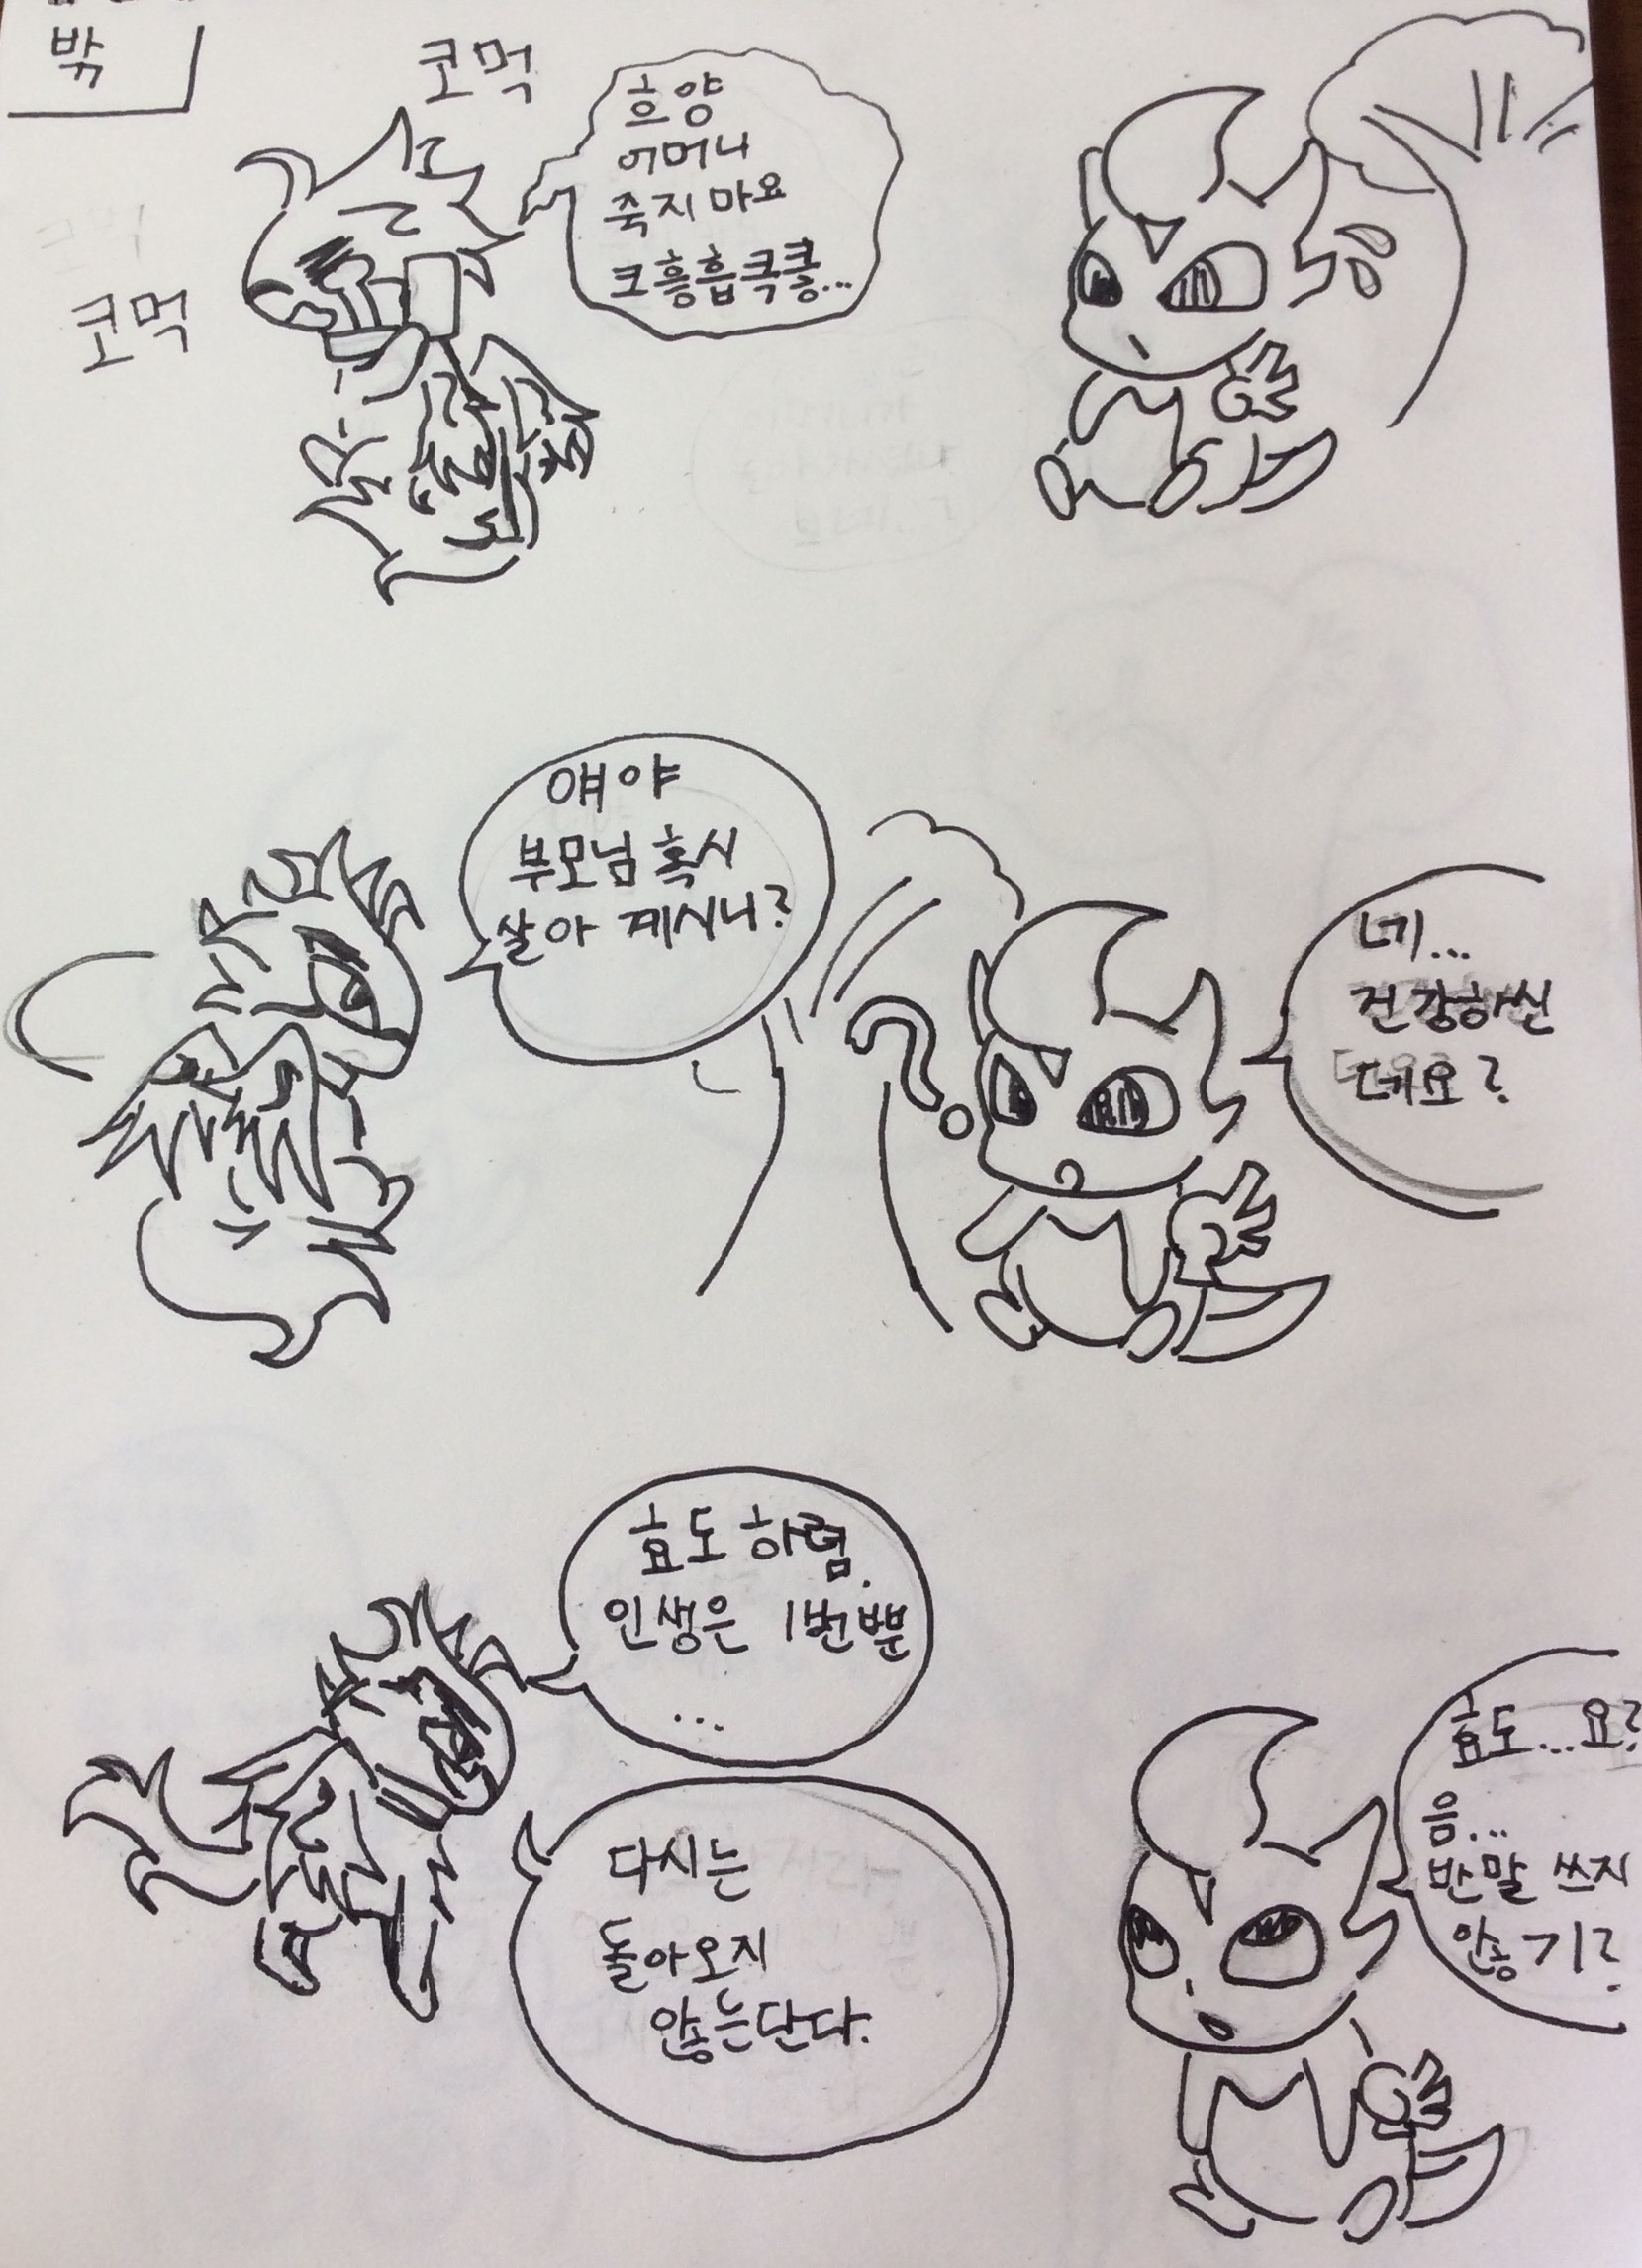 밖
코먹
코먹
흐양
어머니
죽지 마요
크흥흡큭킁...
얘야
부모님 혹시
살아 계시니?
네...
건강하신
데요?
효도 하렴.
인생은 1번뿐
...
다시는
돌아오지
않는단다.
효도...요?
음...
반말 쓰지
않기?